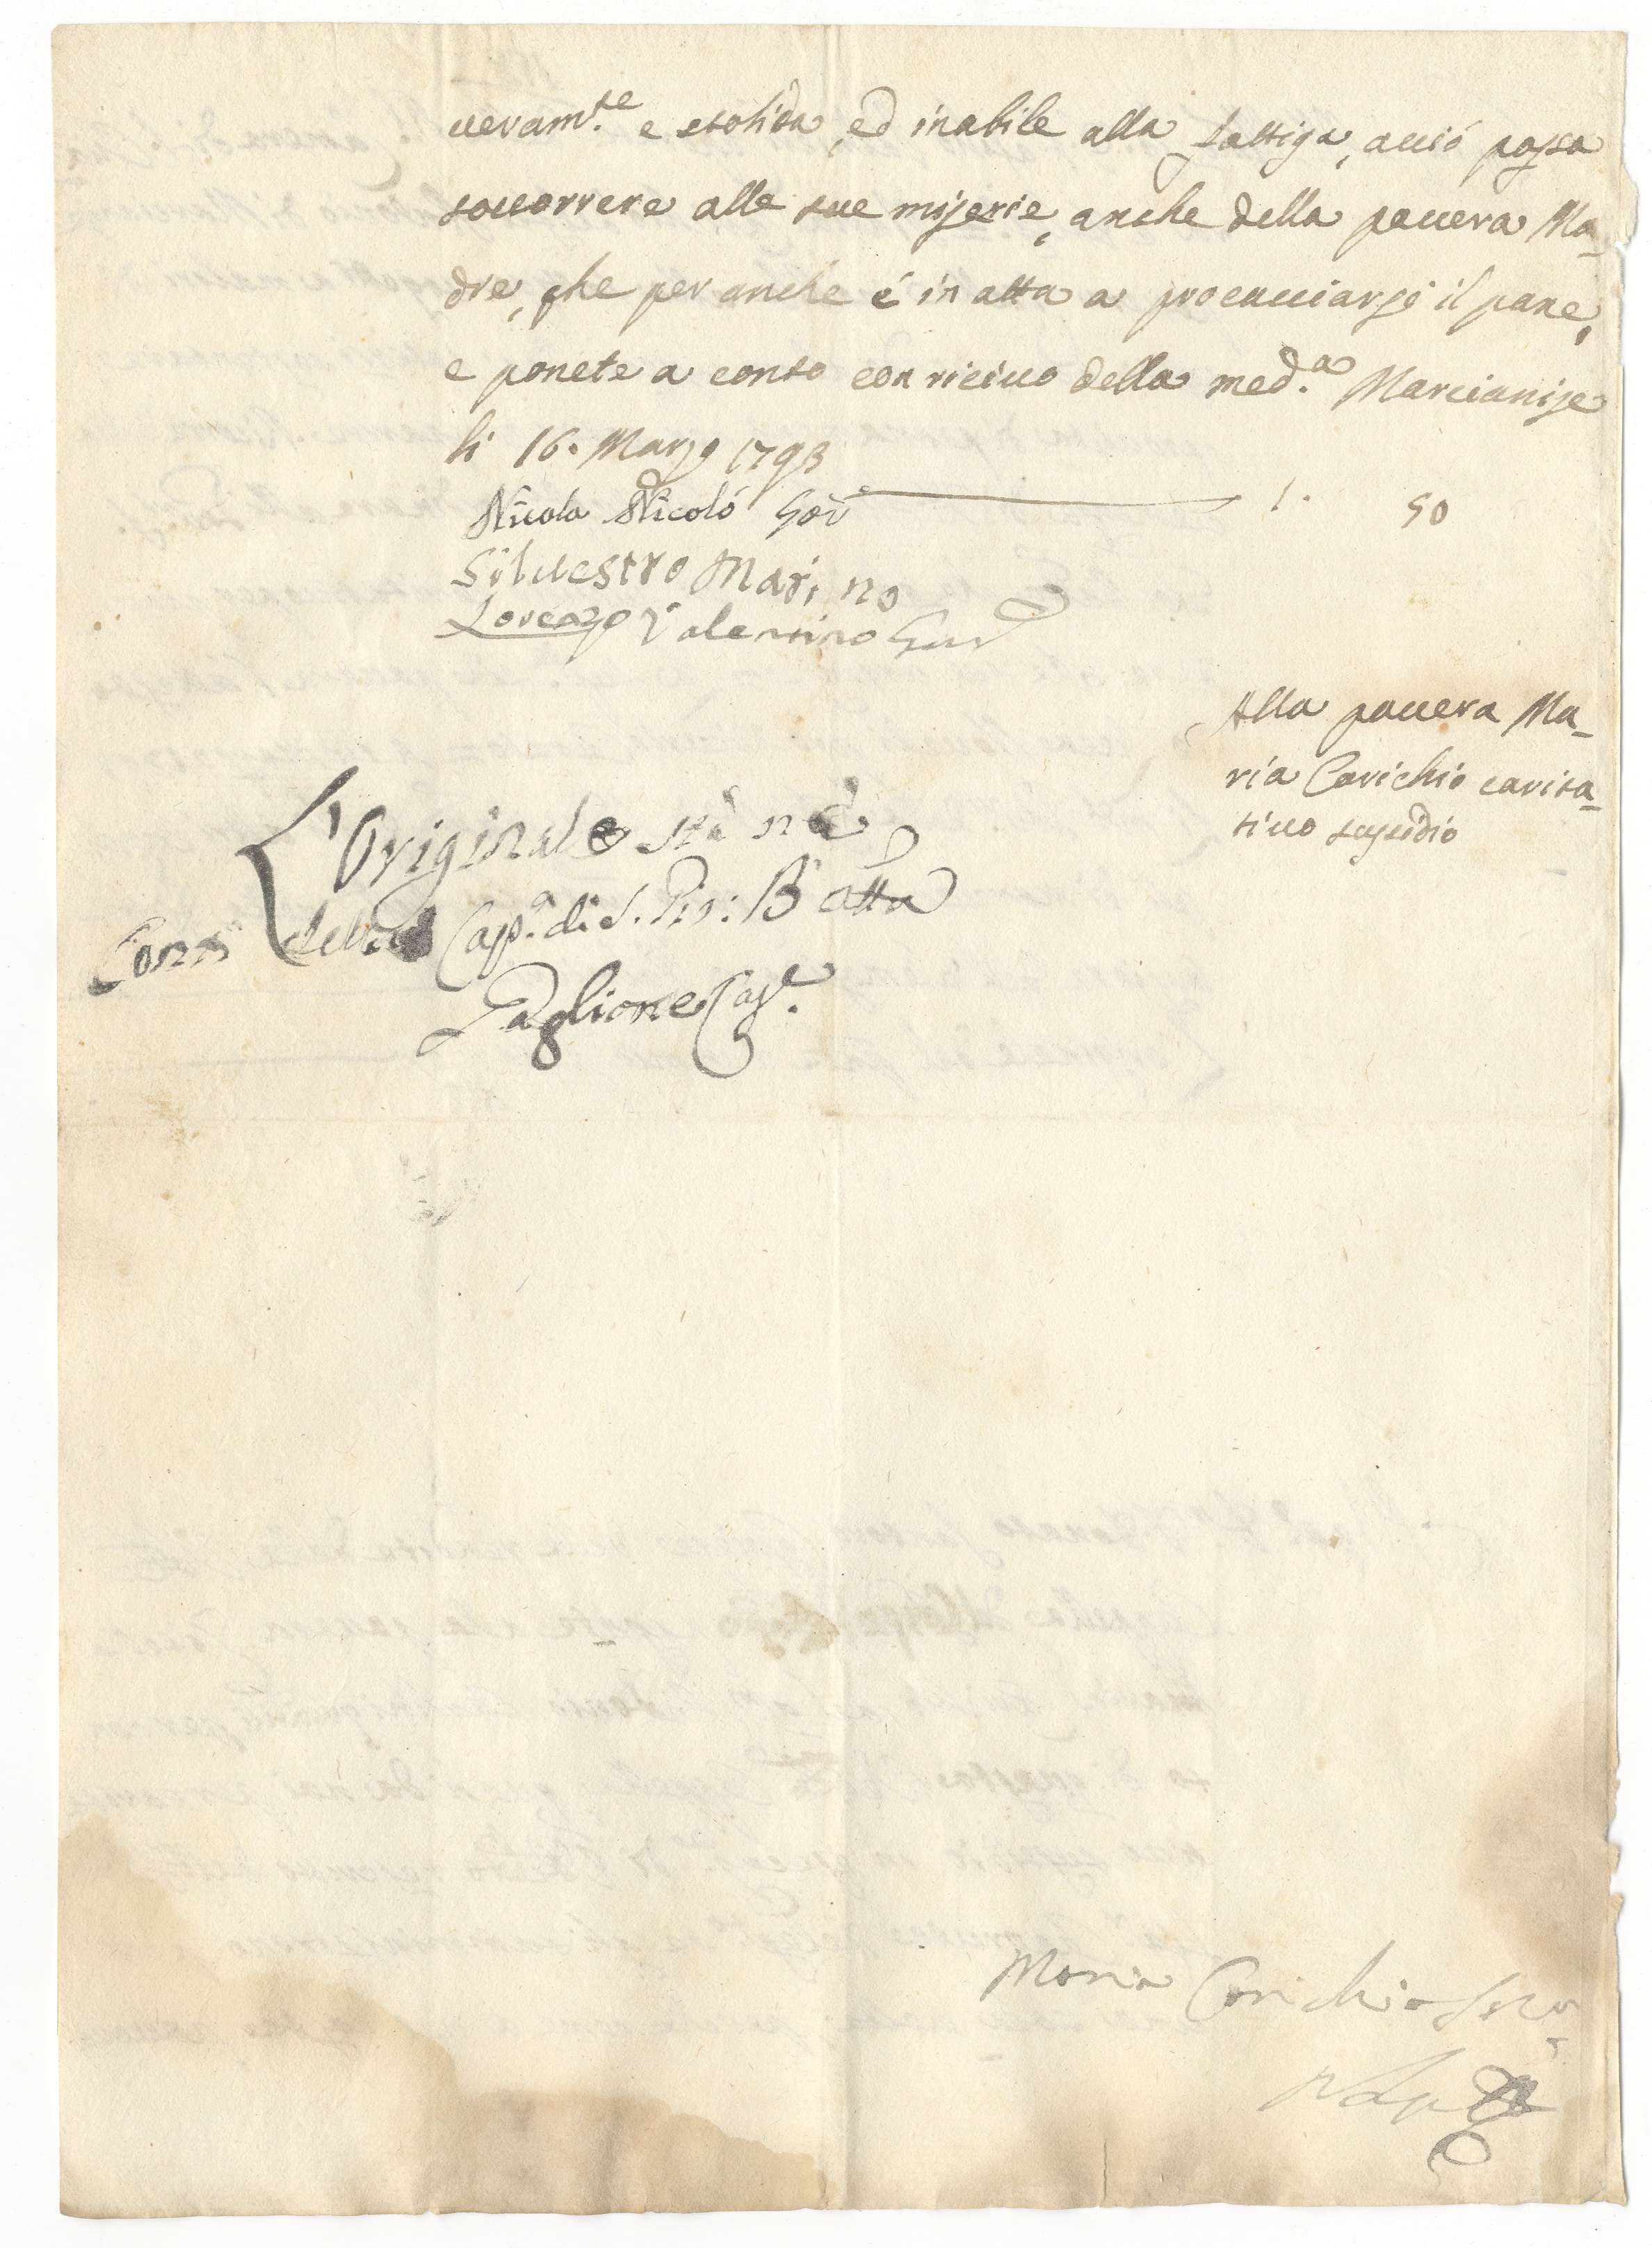 veram.te e stolida, ed inabile alla fattiga, acciò possa
soccorrere alle sue miserie, anche della povera Ma-
dre, che per anche è inatta a procacciarsi il pane,
e ponete a conto con ricivo della med.a Marcianise
li 16. Marzo 1793
Nicola Nicolò Gov.e 1. 50
Silvestro Marino
Lorenzo Valentino Gov
Alla povera Ma-
ria Carichio carita-
tivo sussidio
L'Originale stà nè
Capp.a di S. Gio: Batta
Paglione Cap.
Maria Carichio